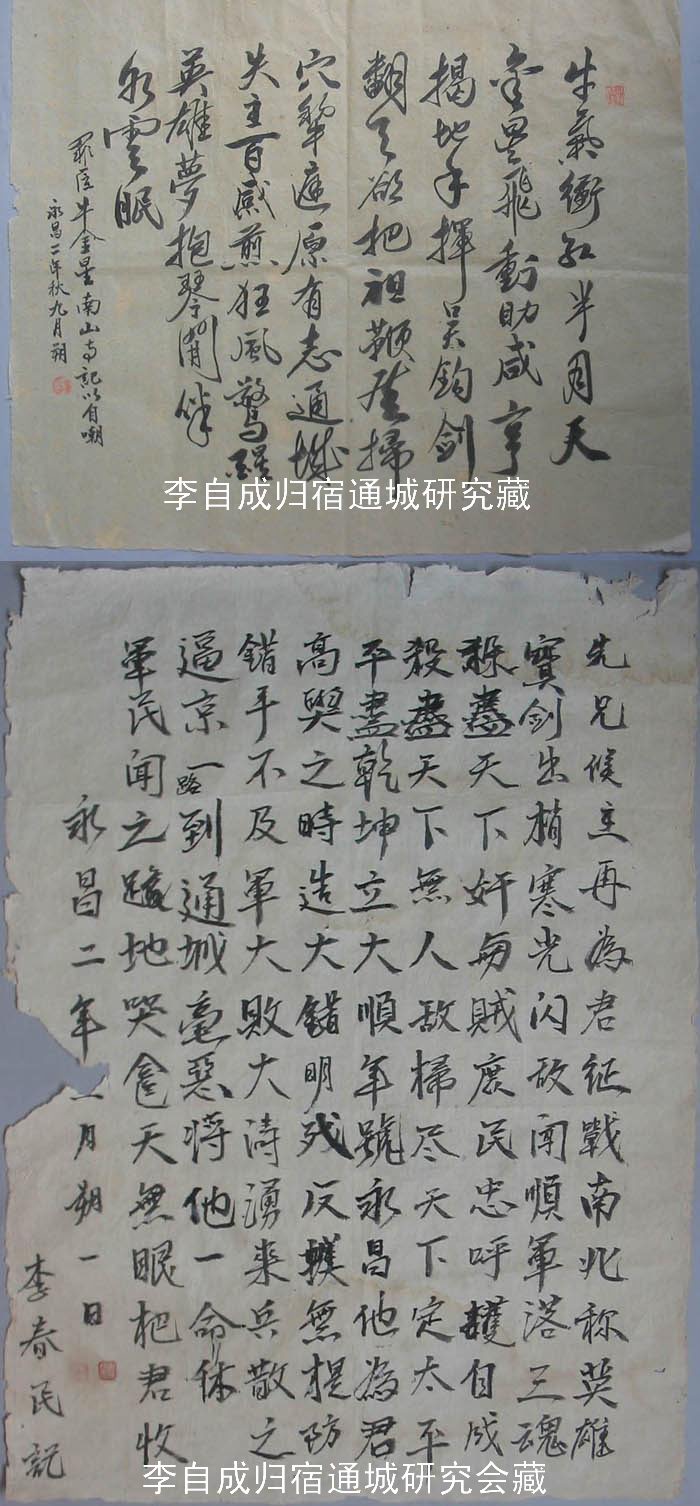 牛氣衝紅半月天
金星飛動助咸亨
揭地手揮吳鉤劍
翻天欲把祖鞭掃
穴犂庭原有志通城
失主百感煎狂風驚醒
英雄夢抱琴閒伴
水雲眠
罪臣牛金星南山寺記以自嘲
永昌二年秋九月朔
李自成归宿通城研究藏
先兄候主再為君征戰南北称英雄
寶劍出梢寒光闪敌闻順軍落三魂
殺盡天下奸與賊庶民忠呼擁自成
殺盡天下無人敌掃尽天下定太平
平盡乾坤立大順年號永昌他為君
高興之時造大錯明残反撲無提防
錯手不及軍大敗大涛湧来兵散之
逼京一路到通城惡將他一命休
軍民聞之跪地哭倉天無眼把君收
永昌二年月朔一日
李春民記
李自成归宿通城研究会藏